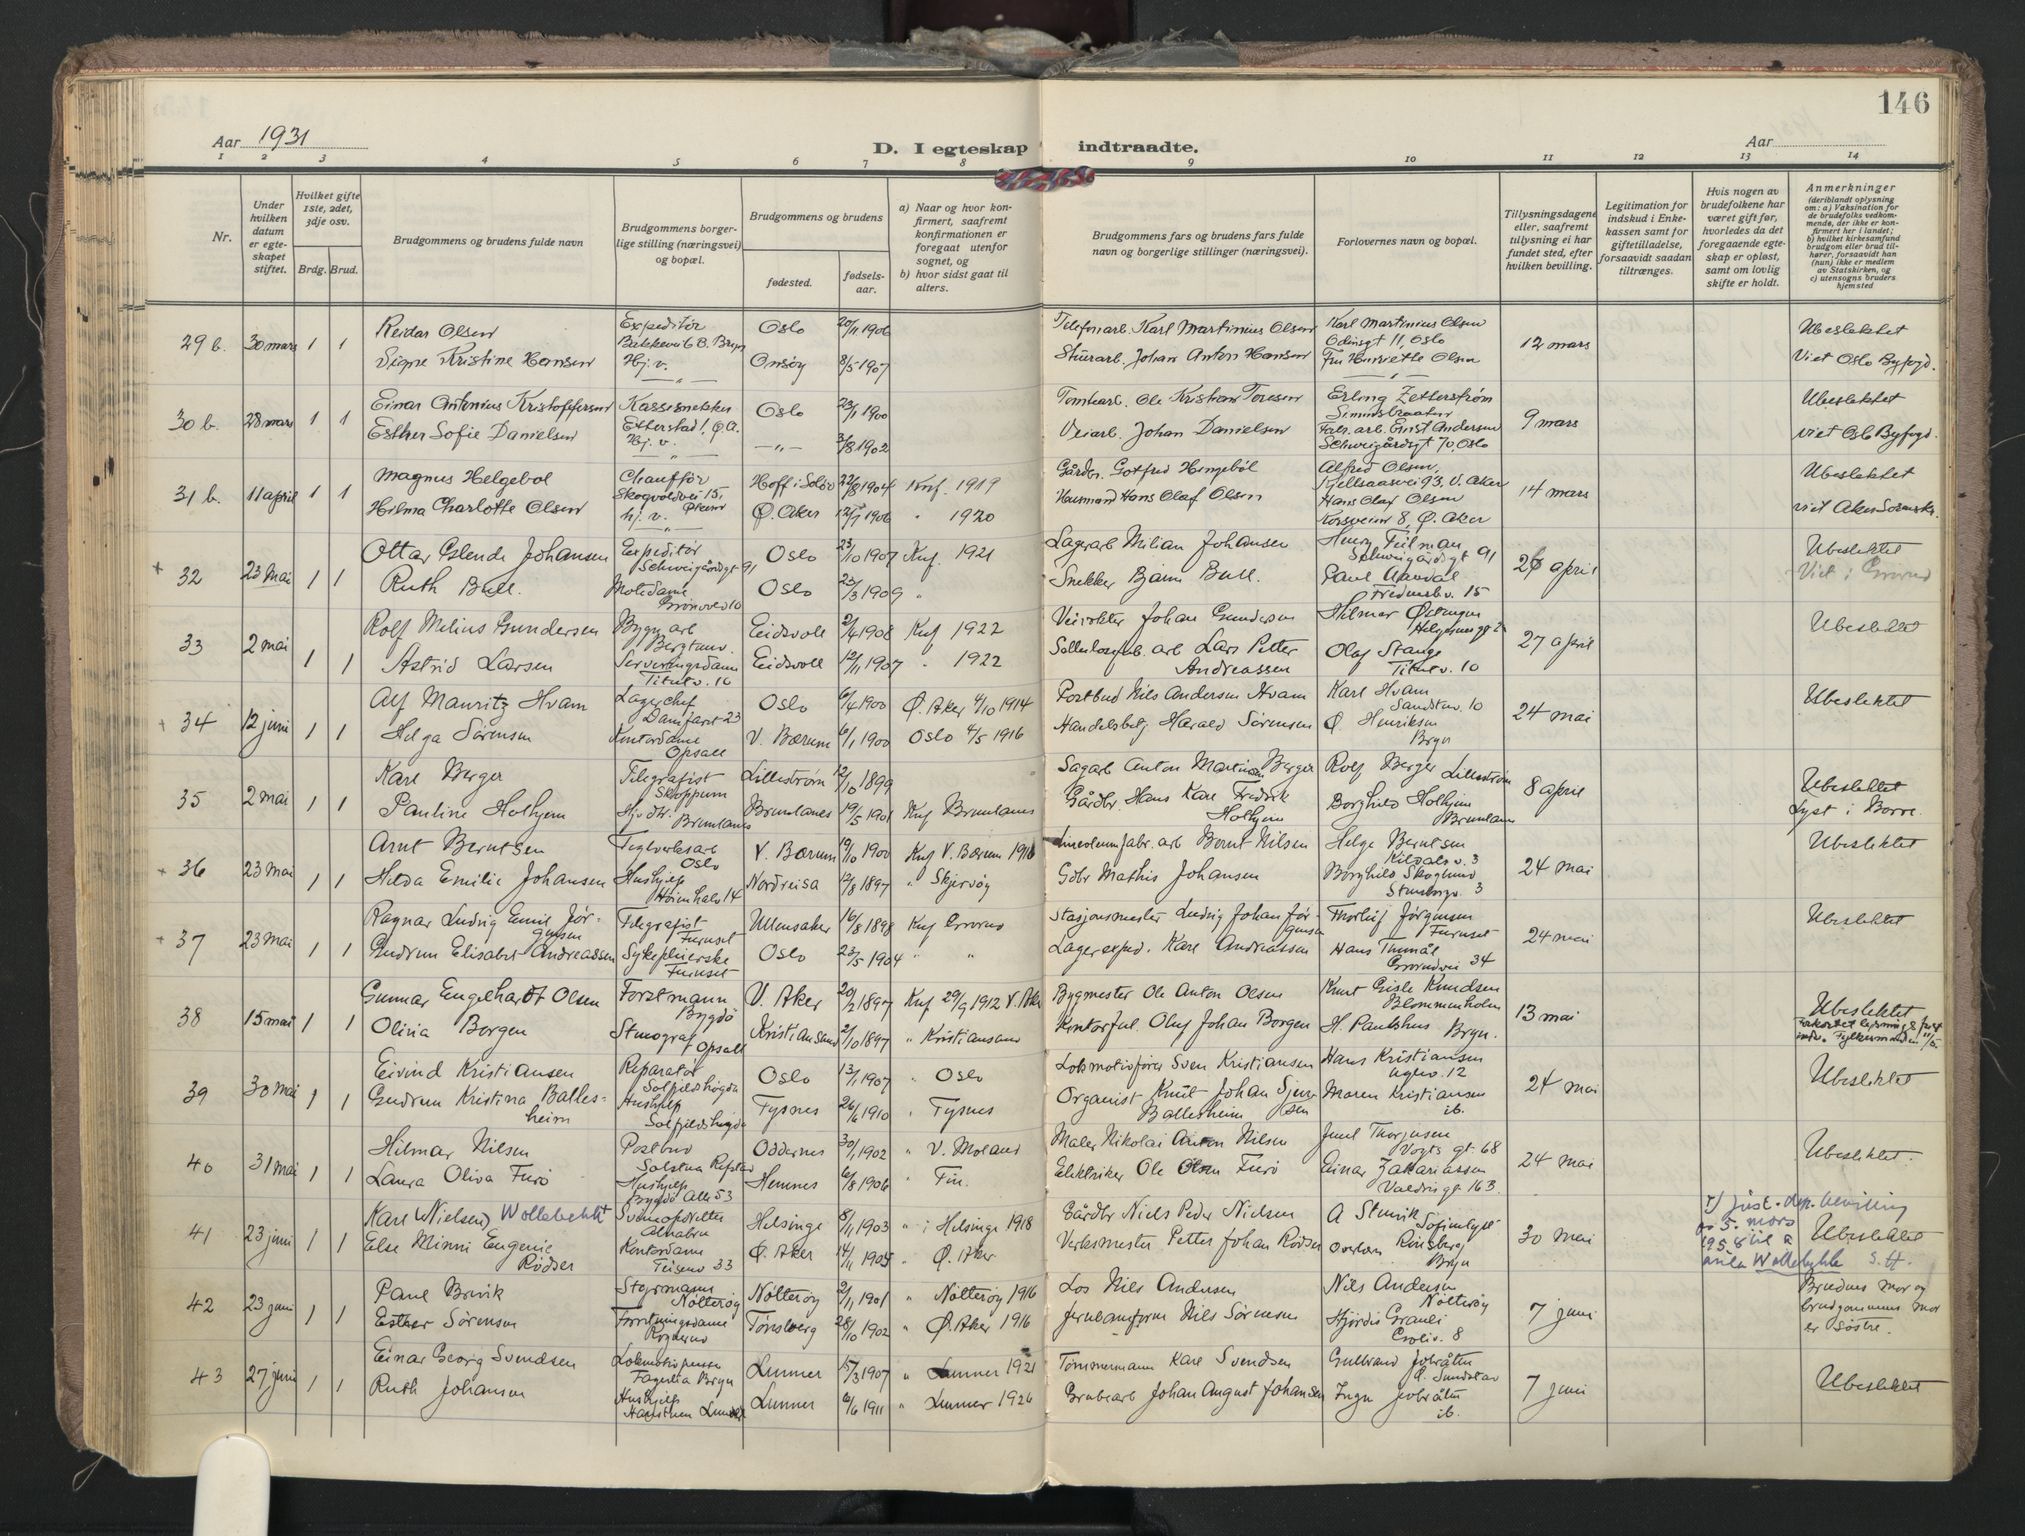 146
Aar 1931
D. I egteskap indtraadte.
Aar
1 2 3 4 5 6 7 8 9 10 11 12 13 14
Nr.
Under hvilken datum er egteskapet stiftet.
Hvilket gifte 1ste, 2det, 3dje osv.
Brdg. Brud.
Brudgommens og brudens fulde navn
Brudgommens borgerlige stilling (næringsvei) og bopæl.
Brudgommens og brudens
fødested.
fødselsaar.
a) Naar og hvor konfirmert, saafremt konfirmationen er foregaat utenfor sognet, og
b) hvor sidst gaat til alters.
Brudgommens fars og brudens fars fulde navn og borgerlige stillinger (næringsvei).
Forlovernes navn og bopæl.
Tillysningsdagene eller, saafremt tillysning ei har fundet sted, efter hvilken bevilling.
Legitimation for indskud i Enkekassen samt for giftetilladelse, forsaavidt saadan tiltrænges.
Hvis nogen av brudefolkene har været gift før, hvorledes da det foregaaende egteskap er opløst, samt om lovlig skifte er holdt.
Anmerkninger
(deriblandt oplysning om: a) Vaksination for de brudefolks vedkommende, der ikke er konfirmert her i landet; b) hvilket kirkesamfund brudgom eller brud tilhører, forsaavidt han (hun) ikke er medlem av Statskirken, og c) utensogns bruders hjemsted
29 b. 30 mars 1 1 Reidar Olsen Expeditør Oslo 20/11 1906 Telefonarb. Karl Martinius Olsen Karl Martinius Olsen Odinsgt 11, Oslo 12 mars Ubeslektet
Signe Kristine Hansen Hj. v. Onsøy 8/5 1907 Stuerarb. Johan Anton Hansen Fru Henriette Olsen Viet Oslo Byfogd.
30 b. 28 mars 1 1 Einar Antonius Kristoffersen Kassesnekker Oslo 23/1 1900 Tomtearb. Ole Kristian Toresen Erling Zetterstrøm 9 mars Ubeslektet
Esther Sofie Danielsen Hj. v. —„— 3/8 1902 Veiarb. Johan Danielsen Fabr. arb. Ernst Andersen Schweigårdsgt 70, Oslo viet Oslo Byfogd.
31 b. 11 april 1 1 Magnus Helgebøl Chauffør Skogvoldvei 15, Hoff i Solør 22/8 1904 Knf. 1919 Gårdbr. Gotfred Hengebøl Alfred Olsen, Kjellsaasvei 93, V. Aker 14 mars Ubeslektet
Hilma Charlotte Olsen hj. v. Ø. Aker 1906 „ 1920 Husmand Hans Olaf Olsen Hans Olaf Olsen Korsveien 8, Ø. Aker viet Aker Sorenskr.
+ 32 23 Mai 1 1 Ottar Eslende Johansen Expeditør Schweigårdsgt 91 Oslo 23/10 1907 Knf. 1921 Lagerarb Milian Johansen Henry Tidman Schweigårdsgt 91 26 april Ubeslektet
Ruth Bull. Motedame Grønvold 10 Oslo 23/3 1909 „ Snekker Bjarne Bull. Paul Aavdal 15 Viet i Grorud
33 2 mai 1 1 Rolf Milius Gundersen Bygn arb Bergtunv. Eidsvoll 2/4 1908 Knf 1922 Veivokter Johan Gundersen Hilmar Østengen 27 april Ubeslektet
Astrid Larsen Serveringsdame Titutv. 10 Eidsvoll 12/11 1907 „ 1922 arb Lars Petter Andreassen Olaf Stange Titutv. 10
+ 34 12 juni 1 1 Alf Mauritz Hvam Lagerchef Danmarksgt 23 Oslo 6/4 1900 Ø. Aker 4/10 1914 Postbud Nils Andersen Hvam Karl Hvam Sandstuv. 10 24 mai Ubeslektet
Helga Sørensen Kontordame Opsall V. Bærum 6/1 1900 Oslo 4/5 1916 Handelsbetj. Harald Sørensen Ø. Henriksen Bryn
35 2 mai 1 1 Karl Berger Telegrafist Skoppum Lillestrøm 12/10 1899 Sagarb Anton Martin Berger Rolf Berger Lillestrøm 8 april Ubeslektet
Pauline Holhjem Brunlanes Brunlanes 19/5 1901 Knf Brunlanes Gårdbr Hans Karl Fredrik Holhjem Borghild Holhjem Brunlanes Lyst i Borre.
+ 36 23 Mai 1 1 Arnt Berntsen Teglverksarb Oslo V. Bærum 19/10 1900 Knf V. Bærum 1916 Linoleumfabr. arb Bernt Nilsen Helge Berntsen Kildalsv. 3 24 mai Ubeslektet
Hilda Emilie Johansen Hushjelp Nordreisa 12/8 1897 „ Skjervøy Gbr Mathis Johansen Borghild Skoglund 3
+ 37 23 Mai 1 1 Ragnar Ludvig Emil Jørgensen Telegrafist Furuset Ullensaker 16/8 1898 Knf Grorud Stasjonsmester Ludvig Johan Jørgensen Thorleif Jørgensen Furuset 24 mai Ubeslektet
Gudrun Elisabet Andreassen Sykepleierske Furuset Oslo 23/5 1904 „ „ Lagerexped. Karl Andreassen Hans Grorudvei 34
38 15 mai 1 1 Gunnar Engelhardt Olsen Forstmann Bygdø V. Aker 20/2 1897 Knf 29/9 1912 V. Aker Bygmester Ole Anton Olsen Knut Gisle Knudsen Blommenholm 13 mai Ubeslektet
Olivia Borgen Stenograf Opsall Kristiansand 2/10 1897 „ Kristiansand Kontorful. Oluf Johan Borgen H. Paulshus Bryn. Forkortet lysning
39 30 Mai 1 1 Eivind Kristiansen Reparatør Solfjeldshøgda Oslo 13/1 1907 „ Oslo Lokomotivfører Sven Kristiansen Hans Kristiansen 12 24 mai Ubeslektet
Gudrun Kristina Ballesheim Hushjelp Solfjeldshøgda Tysnes 26/6 1910 „ Tysnes Organist Knut Johan Ballesheim Maren Kristiansen ib.
40 31 mai 1 1 Hilmar Nilsen Postbud Oddernes 30/1 1902 „ V. Moland Maler Nikolai Anton Nilsen Juul Thorjusen Vogts gt. 68 24 mai Ubeslektet.
Laura Oliva Furø Hushjelp Bygdø Alle 53 Hemnes 6/8 1906 „ Elektriker Ole Olsen Furø Einar Zakariassen Valdresgt 163.
41 23 juni 1 1 Karl (Nielsen) Wollebekk Alnabru Helsinge 8/11 1903 „ i Helsinge 1918 Gårdbr Niels Peder Nielsen A Stenvik 30 Mai Ubeslektet
Else Minni Eugenie Rødser Kontordame Teisenv 33 Ø. Aker 14/11 1905 „ Ø. Aker Verksmester Petter Johan Rødser Bryn
Just. dep. bevilling av 5. mars 1958 til å Wollebekk S.H.
42 23 juni 1 1 Paul Brevik Styrmann Nøtterøy Nøtterøy 2/11 1901 „ Nøtterøy 1916 Los Nils Andersen Nils Andersen Nøtterøy 7 juni Brudens mor og brudgommens mor er søstre.
Esther Sørensen Forretningsdame Tønsberg 28/10 1902 „ Ø. Aker 1916 Jernbaneform Nils Sørensen Hjørdis Granli 8
43 27 juni 1 1 Einar Georg Svendsen Lokomotivpusser Bryn Lunner 15/3 1907 „ Lunner 1921 Tømmermann Karl Svendsen Gulbrand Jobråten 7 juni Ubeslektet
Ruth Johansen Hushjelp Lunner 6/6 1911 „ Lunner 1926 Grubearb Johan August Johansen Inga Jobråten ib.